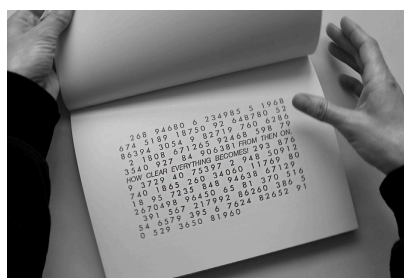 268 94680 6 234985 5 1968
674 5189 18750 92 648780 52
86394 3054 9 82719 760 6286
2 1808 671265 92468 598 79
3540 927 84 906381 FROM THEN ON,
HOW CLEAR EVERYTHING BECOMES! 293 876
9 3729 40 75397 2 948 50912
740 1865 260 34060 41769 80
18 95 7235 848 94638 67129
2670498 96450 65 81 370 516
391 567 217992 86260 386 5
54 6579 395 6 7624 82652 91
0 529 3650 81960